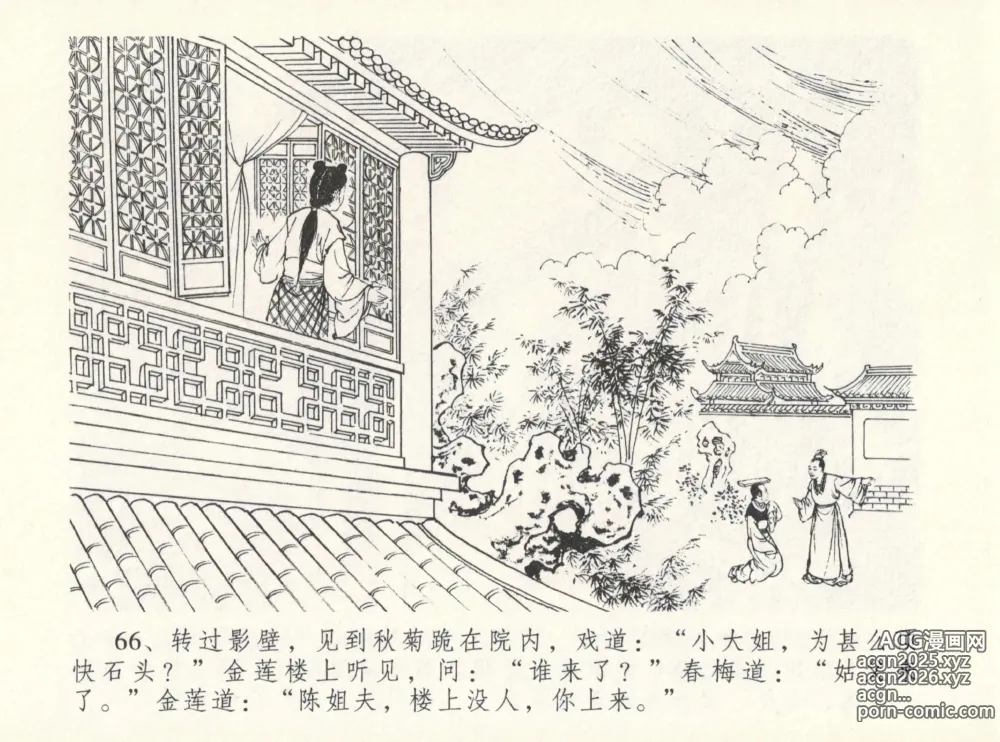 66、转过影壁，见到秋菊跪在院内，戏道：“小大姐，为甚么
快石头？”金莲楼上听见，问：“谁来了？”春梅道：“姑
了。”金莲道：“陈姐夫，楼上没人，你上来。”
ACG漫画网
acgn2025.xyz
acgn2026.xyz
acgn...
porn-comic.com